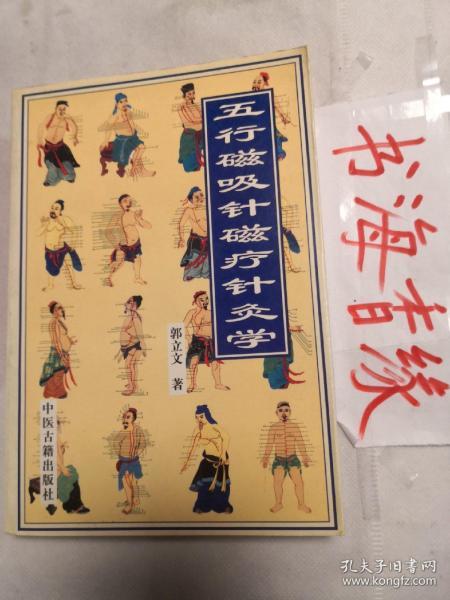 五行磁吸针磁疗针灸学
郭立文 著
中医古籍出版社
书海香缘
孔夫子旧书网
www.kongfz.com